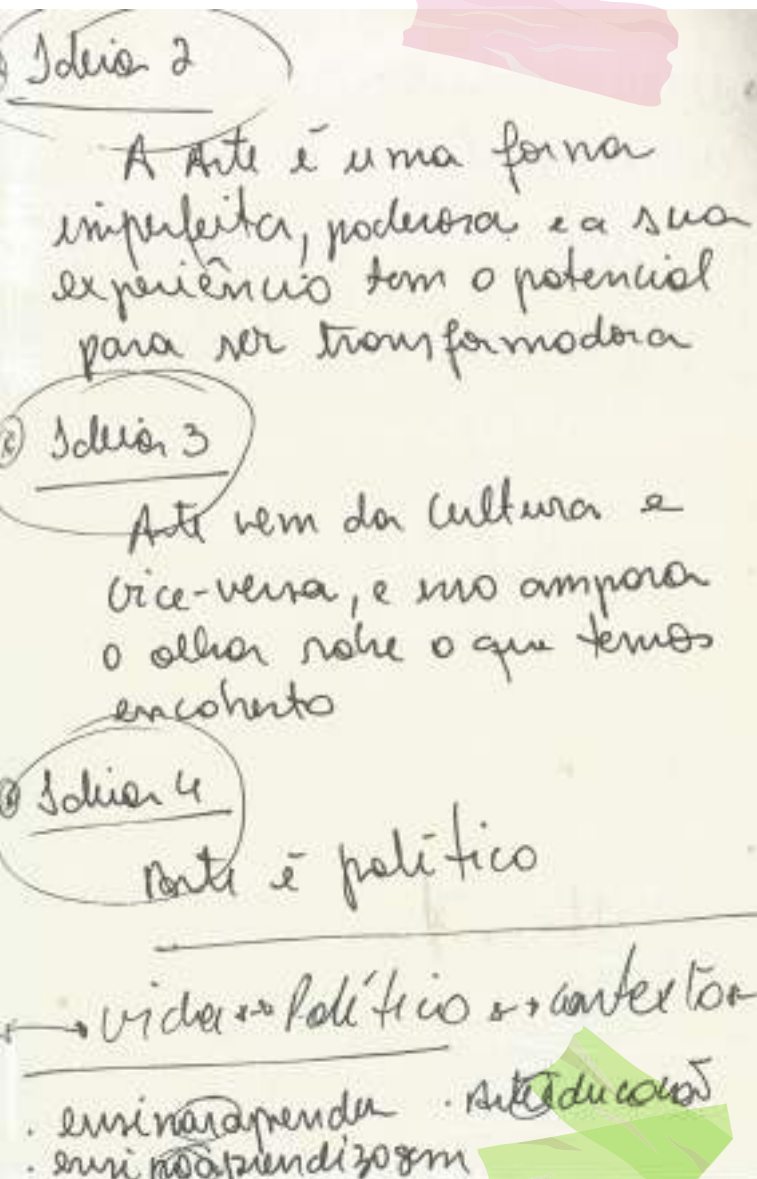 Ideia 2
A Arte é uma forma
imperfeita, poderosa e a sua
experiência tem o potencial
para ser transformadora
Ideia 3
Arte vem da cultura e
vice-versa, e isso ampara
o olhar sobre o que temos
encoberto
Ideia 4
Arte é política
vida ↔ Política ↔ contextos
. ensinaraprender . ArteEducação
. ensinoaprendizagem